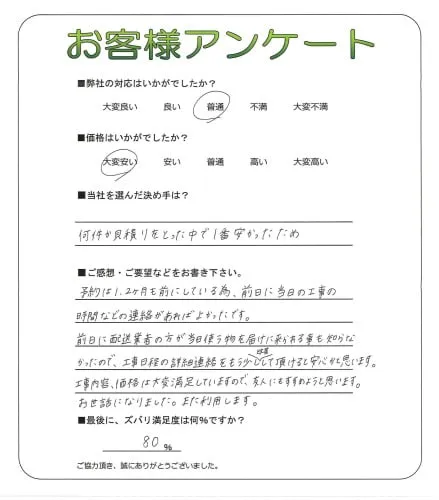 お客様アンケート
■弊社の対応はいかがでしたか?
大変良い 良い 普通 不満 大変不満
■価格はいかがでしたか?
大変安い 安い 普通 高い 大変高い
■当社を選んだ決め手は?
何件か見積りをとった中で1番安かったため
■ご感想・ご要望などをお書き下さい。
予約は1.2ヶ月も前にしている為、前日に当日の工事の
時間などの連絡があればよかったです。
前日に配送業者の方が当日使う物を届けに来られる事も知らな
かったので、工事日程の詳細連絡をもう少しして頂けると安心かと思います。
工事内容、価格は大変満足していますので、友人にもすすめようと思います。
お世話になりました。また利用します。
■最後に、ズバリ満足度は何%ですか?
80 %
ご協力頂き、誠にありがとうございました。